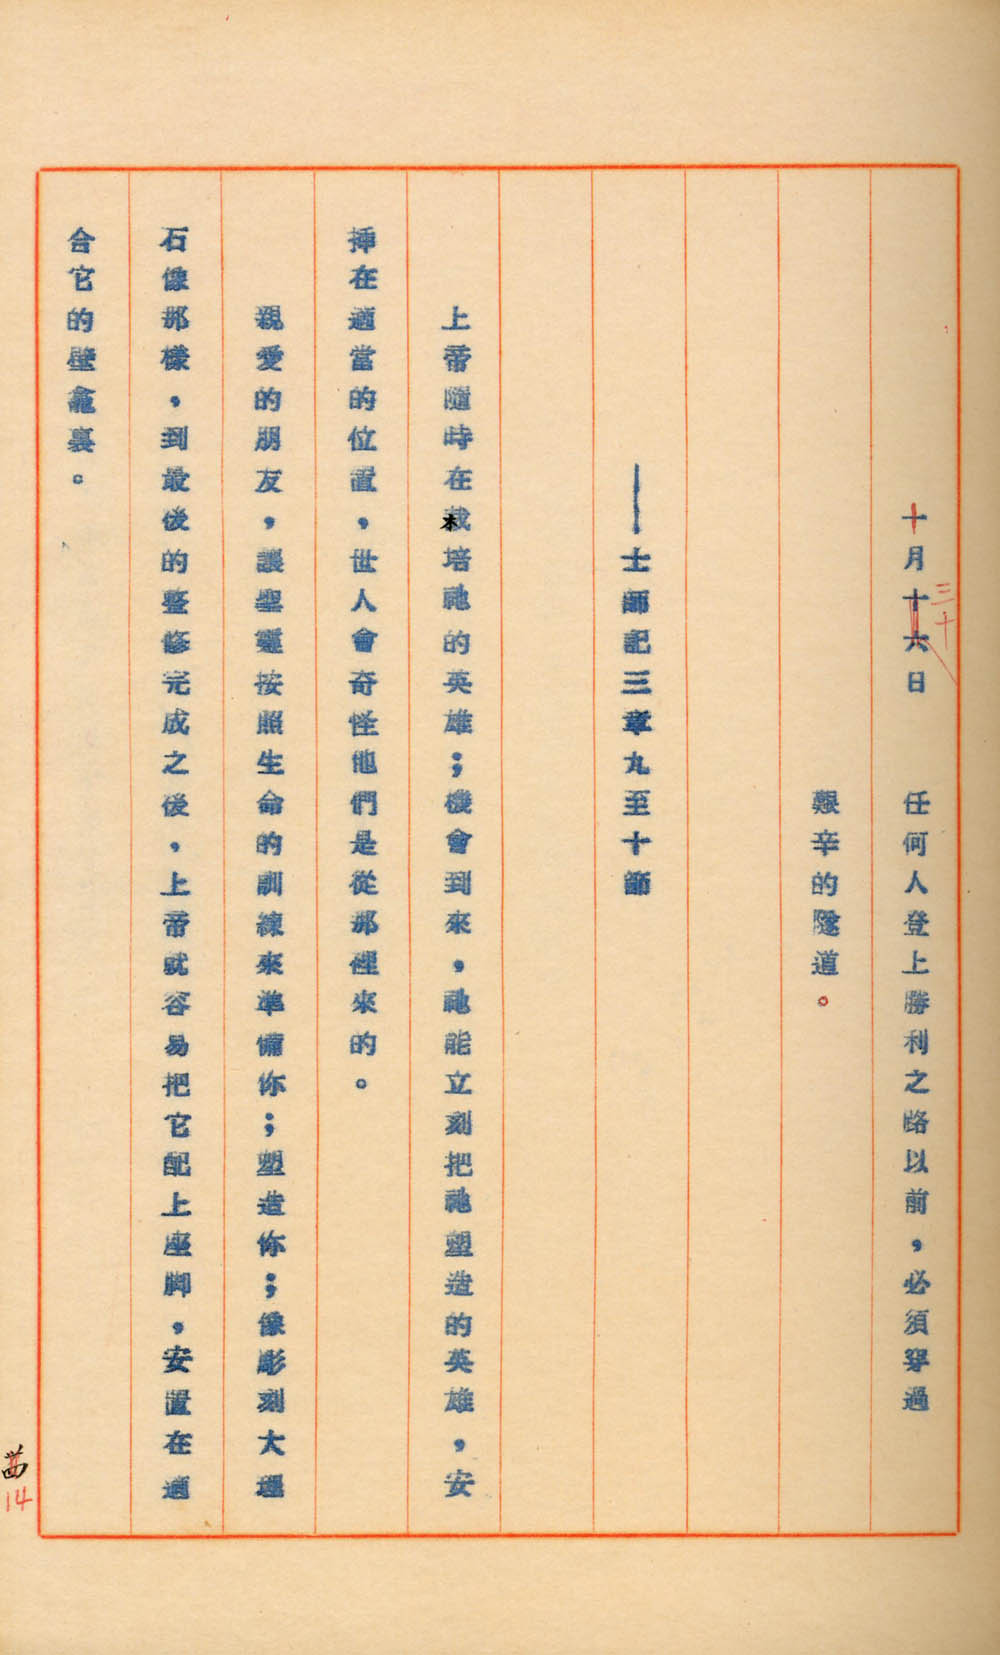 十月十六日　任何人登上勝利之路以前，必須穿過
三十
艱辛的隧道。
——士師記三章九至十節
上帝隨時在栽培祂的英雄；機會到來，祂能立刻把祂塑造的英雄，安
插在適當的位置，世人會奇怪他們是從那裡來的。
親愛的朋友，讓聖靈按照生命的訓練來準備你；塑造你；像彫刻大理
石像那樣，到最後的整修完成之後，上帝就容易把它配上座脚，安置在適
合它的壁龕裏。
14